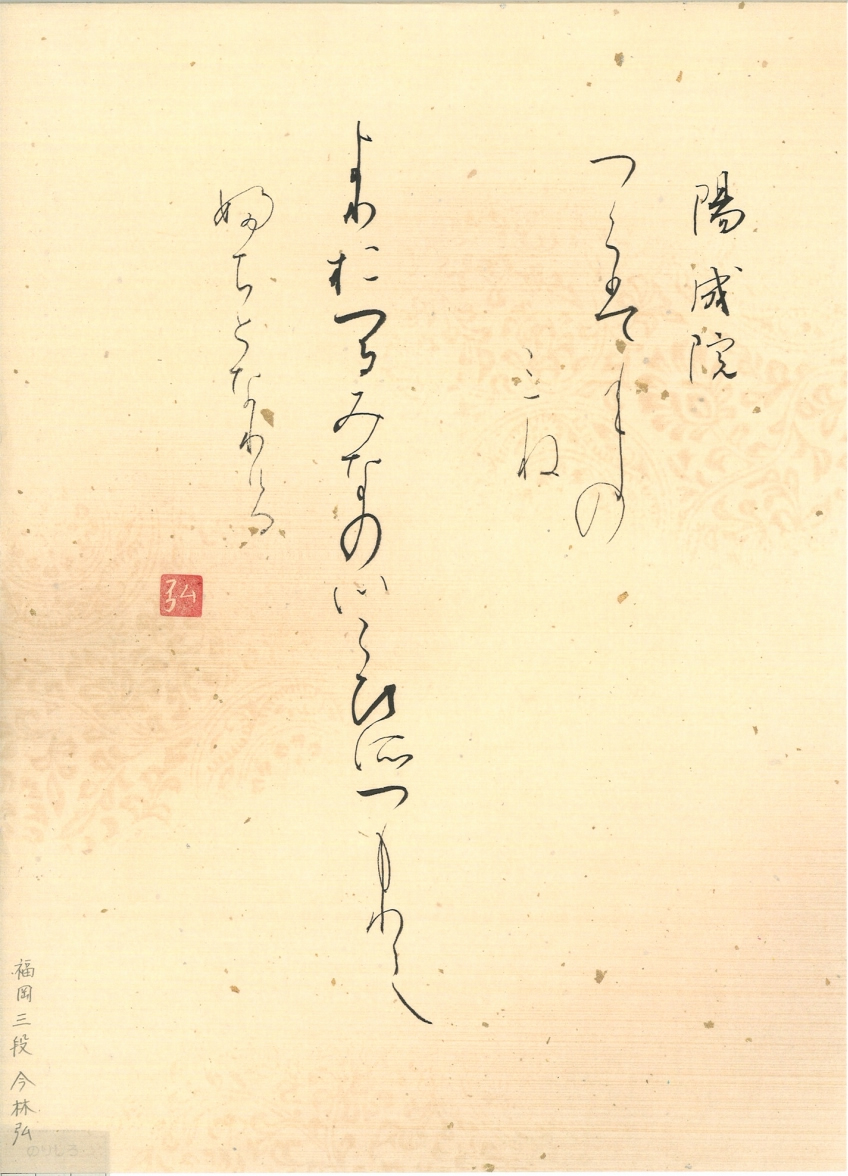 陽成院
つくはねの
みね
よりおつるみなの川こひそつもりて
ふちとなりける
弘
福岡三段 今林弘
のりしろ